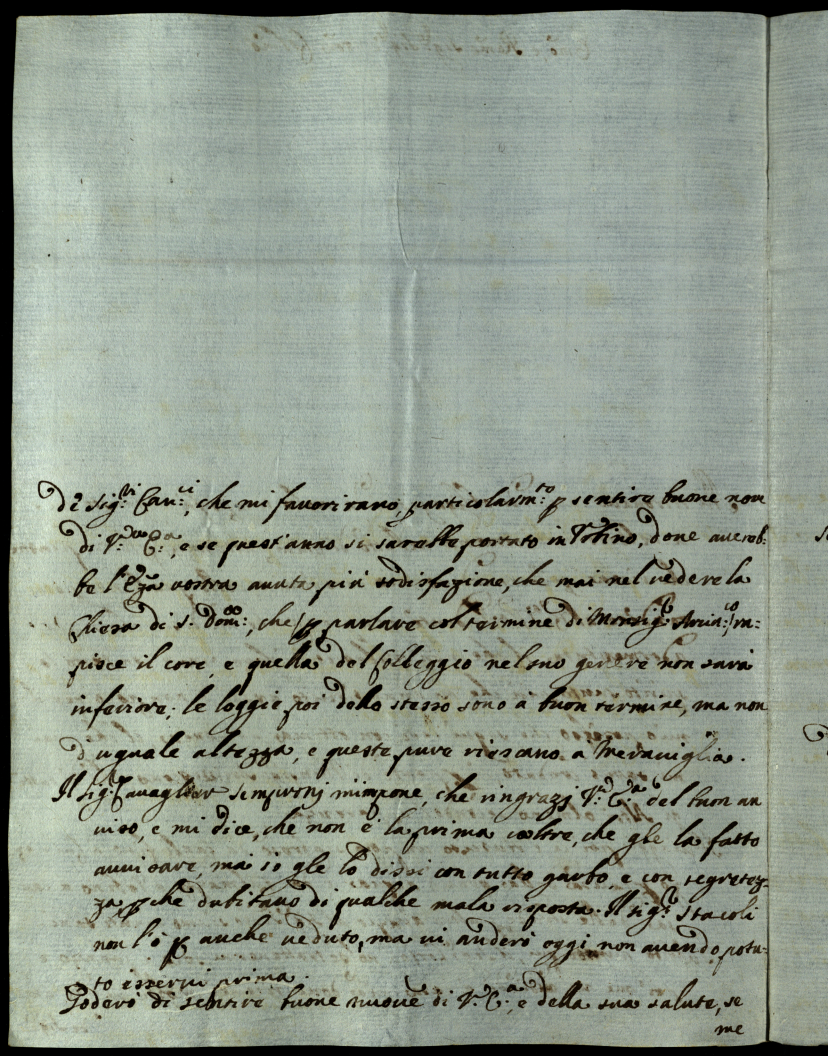 de Sig:ri Can:ci, che mi favorirano, particolarm:to p sentire buone nove
di V:ra E:a, e se quest'anno si sarebbe portato in Torino, dove avereb:
be l'Ecza vostra avuta più sodisfazione, che mai nel vedere la
Chiesa di S. Dom:co, che (p parlare col termine di Monsig:r Arcia:co) ra=
pisce il core, e quella del Colleggio nel suo genere non sarà
inferiore; le loggie poi dello stesso sono a buon termine, ma non
d'uguale altezza, e queste pure riescano a meraviglia.
Il Sig:r Cavaglier Sempronj m'impone, che ringrazj V:ra E:a del buon au
viso, e mi dice, che non è la prima volta, che gle la fatto
auuisare, mai io gle lo dissi con tutto garbo, e con segretez=
za, pche dubitavo di qualche mala risposta. Il Sig:r Stacoli
non l'ò p anche veduto, ma vi anderò oggi non avendo potu=
to esservi prima.
Goderò di sentire buone nuove di V:ra E:a, e della sua salute, se
me